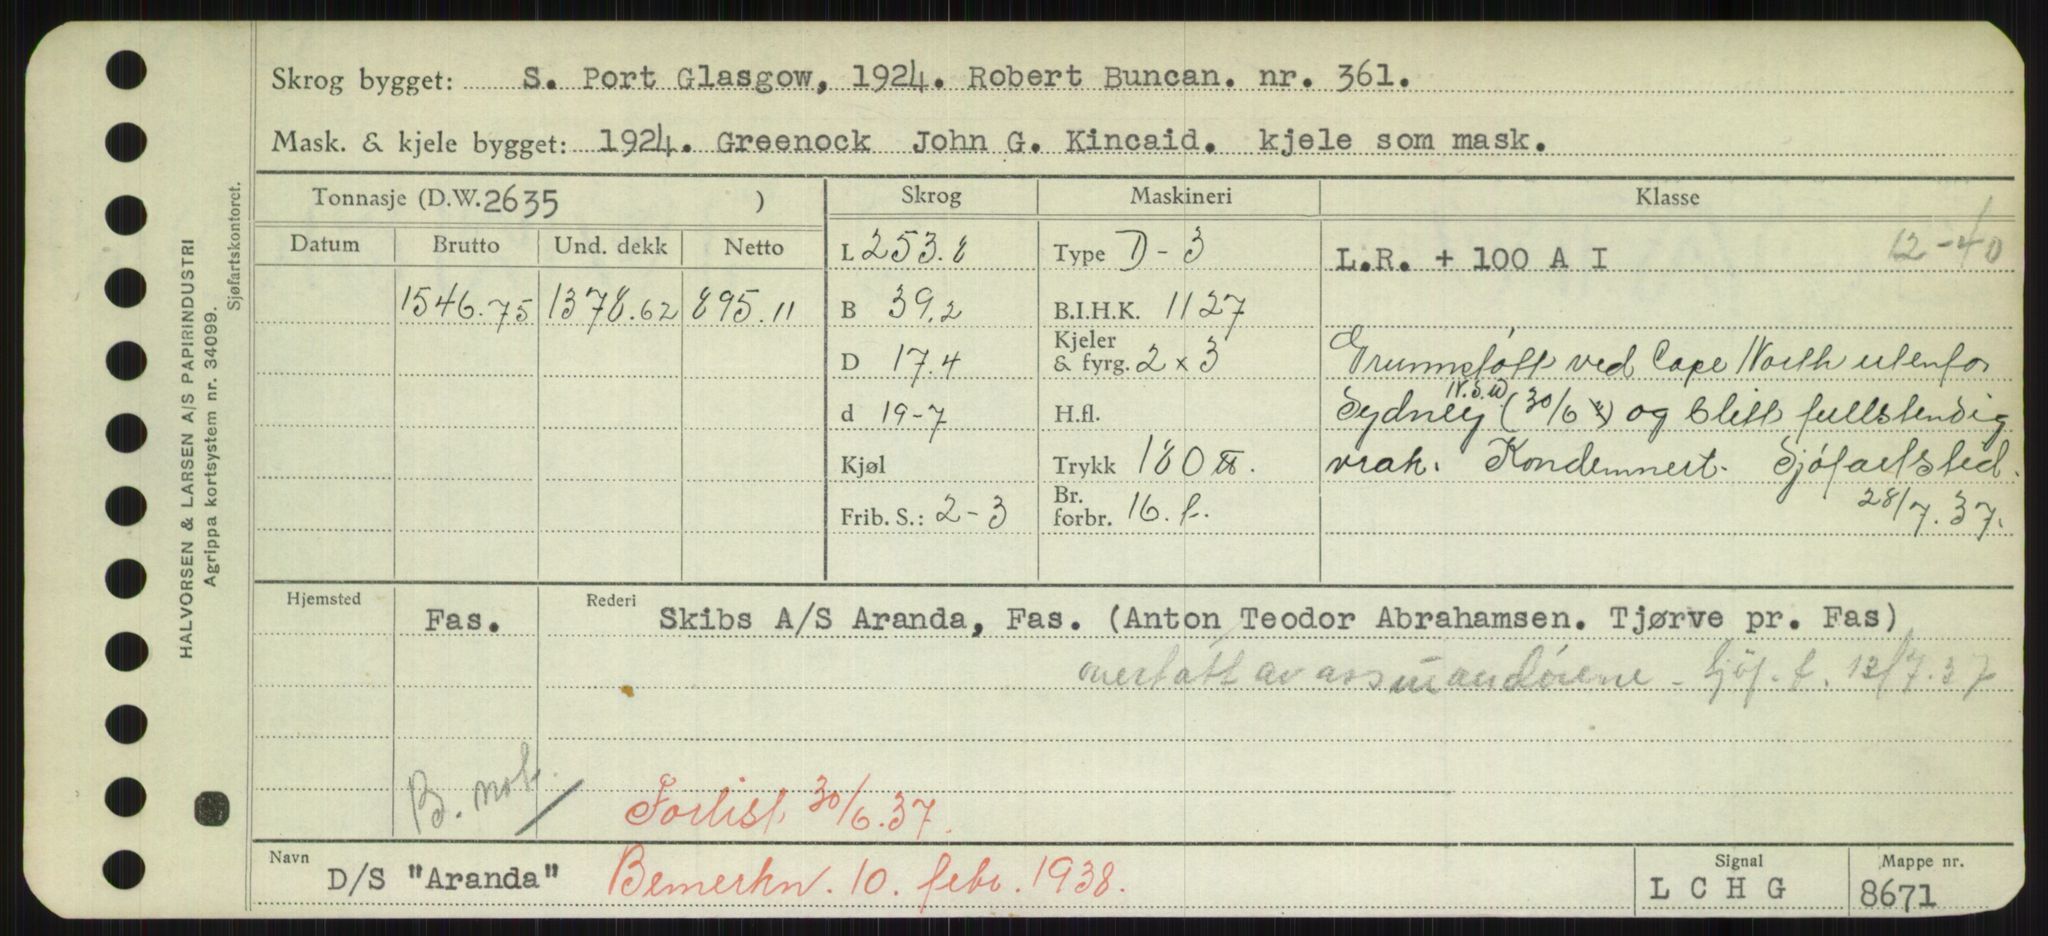 HALVORSEN & LARSEN A/S PAPIRINDUSTRI
Agrippa kortsystem nr. 34099.
Sjøfartskontoret.
Skrog bygget: S. Port Glasgow, 1924. Robert Buncan. nr. 361.
Mask. & kjele bygget: 1924. Greenock John G. Kincaid. kjele som mask.
Tonnasje (D.W. 2635 )
Skrog
Maskineri
Klasse
Datum Brutto Und. dekk Netto
1546.75 1378.62 895.11
L 253.8
B 39.2
D 17.4
d 19-7
Kjøl
Frib. S.: 2-3
Type D-3
B.I.H.K. 1127
Kjeler
& fyrg. 2 x 3
H.fl.
Trykk 180 ℔.
Br.
forbr. 16. f.
12-40
L.R. + 100 A I
Grunnstøtt ved Cape North utenfor
N.S.W.
Sydney (30/6) og blitt fullstendig
vrak. Kondemnert. Sjøfartsted.
28/7.37.
Hjemsted Fas. Rederi Skibs A/S Aranda, Fas. (Anton Teodor Abrahamsen. Tjørve pr. Fas)
overtatt av assurandørene - Sjøf. t. 12/7.37
B. not.
Forlist 30/6.37.
Navn D/S "Aranda" Bemerkn. 10. febr. 1938.
Signal
L C H G
Mappe nr.
8671